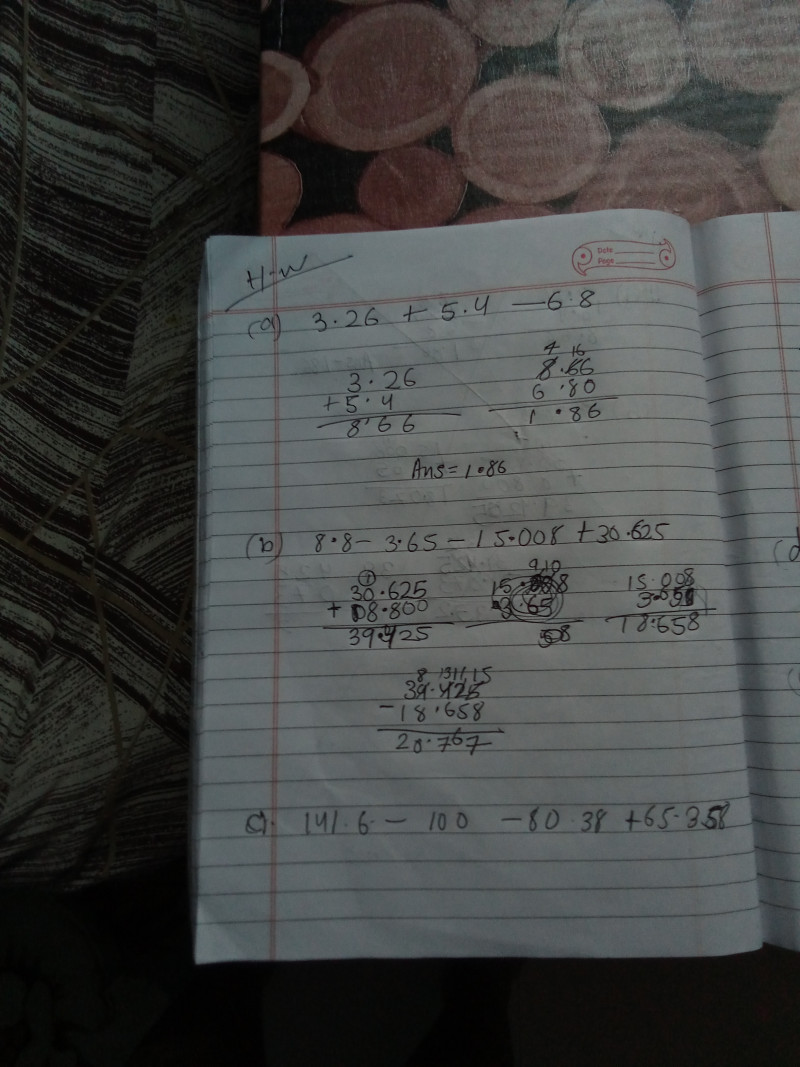 H.W
Date
Page
(a) 3.26 + 5.4 — 6.8
4 16
3.26 8.66
+5.4 6.80
8.66 1.86
Ans = 1.86
(b) 8.8 - 3.65 - 15.008 + 30.625
1 9 10
30.625 15.008 15.008
+ 08.800 3.65
39.425 58 18.658
8 13 11 15
39.425
-18.658
20.767
c). 141.6 - 100 - 80.38 + 65.358
(d